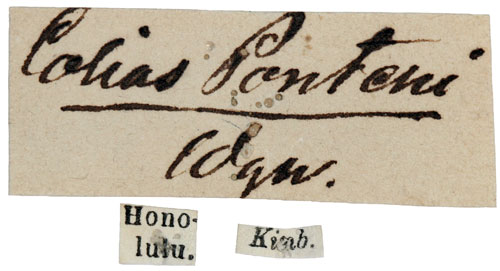 Colias Ponteni
Wgn.
Hono-
lulu.
Kinb.